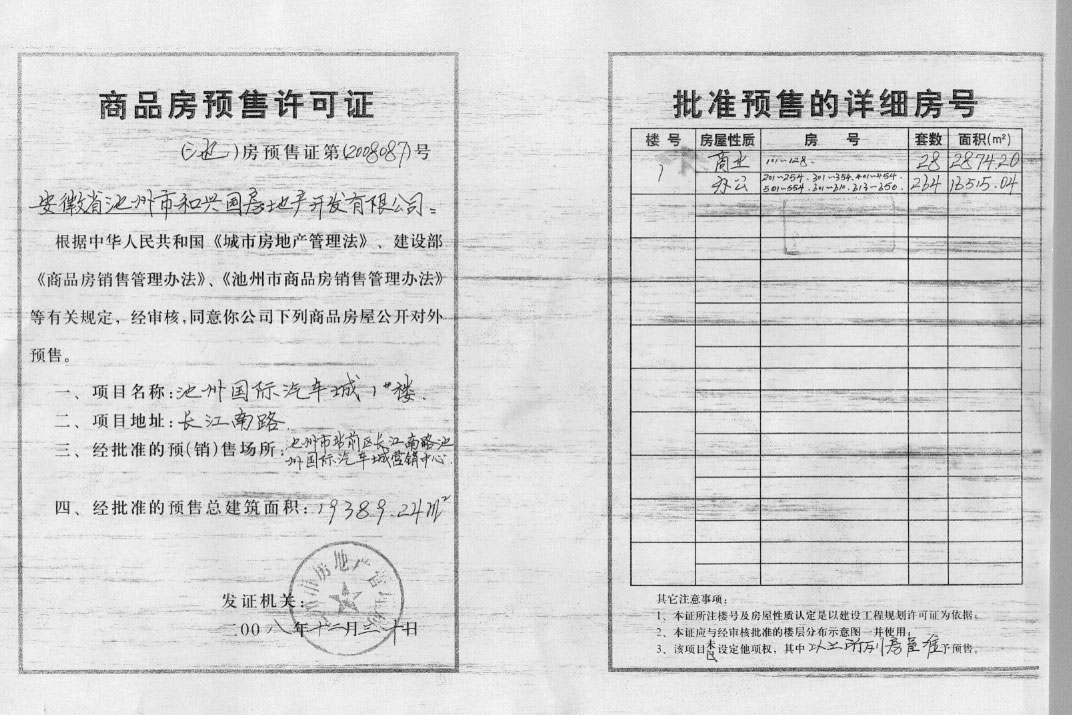 商品房预售许可证
(池)房预售证第(2008087)号
安徽省池州市和兴国房地产开发有限公司:
根据中华人民共和国《城市房地产管理法》、建设部
《商品房销售管理办法》、《池州市商品房销售管理办法》
等有关规定,经审核,同意你公司下列商品房屋公开对外
预售。
一、项目名称:池州国际汽车城1#楼.
二、项目地址:长江南路
三、经批准的预(销)售场所:池州市站前区长江南路池
州国际汽车城营销中心.
四、经批准的预售总建筑面积:19389.24m²
发证机关:
二00八年十二月三十日
批准预售的详细房号
楼号 房屋性质 房号 套数 面积(m²)
1 商业 101~128. 28 2874.20
办公 201~254.301~354.401~454. 264 16515.04
501~554.
其它注意事项:
1、本证所注楼号及房屋性质认定是以建设工程规划许可证为依据;
2、本证应与经审核批准的楼层分布示意图一并使用;
3、该项目未设定他项权,其中以上所列房屋准予预售。